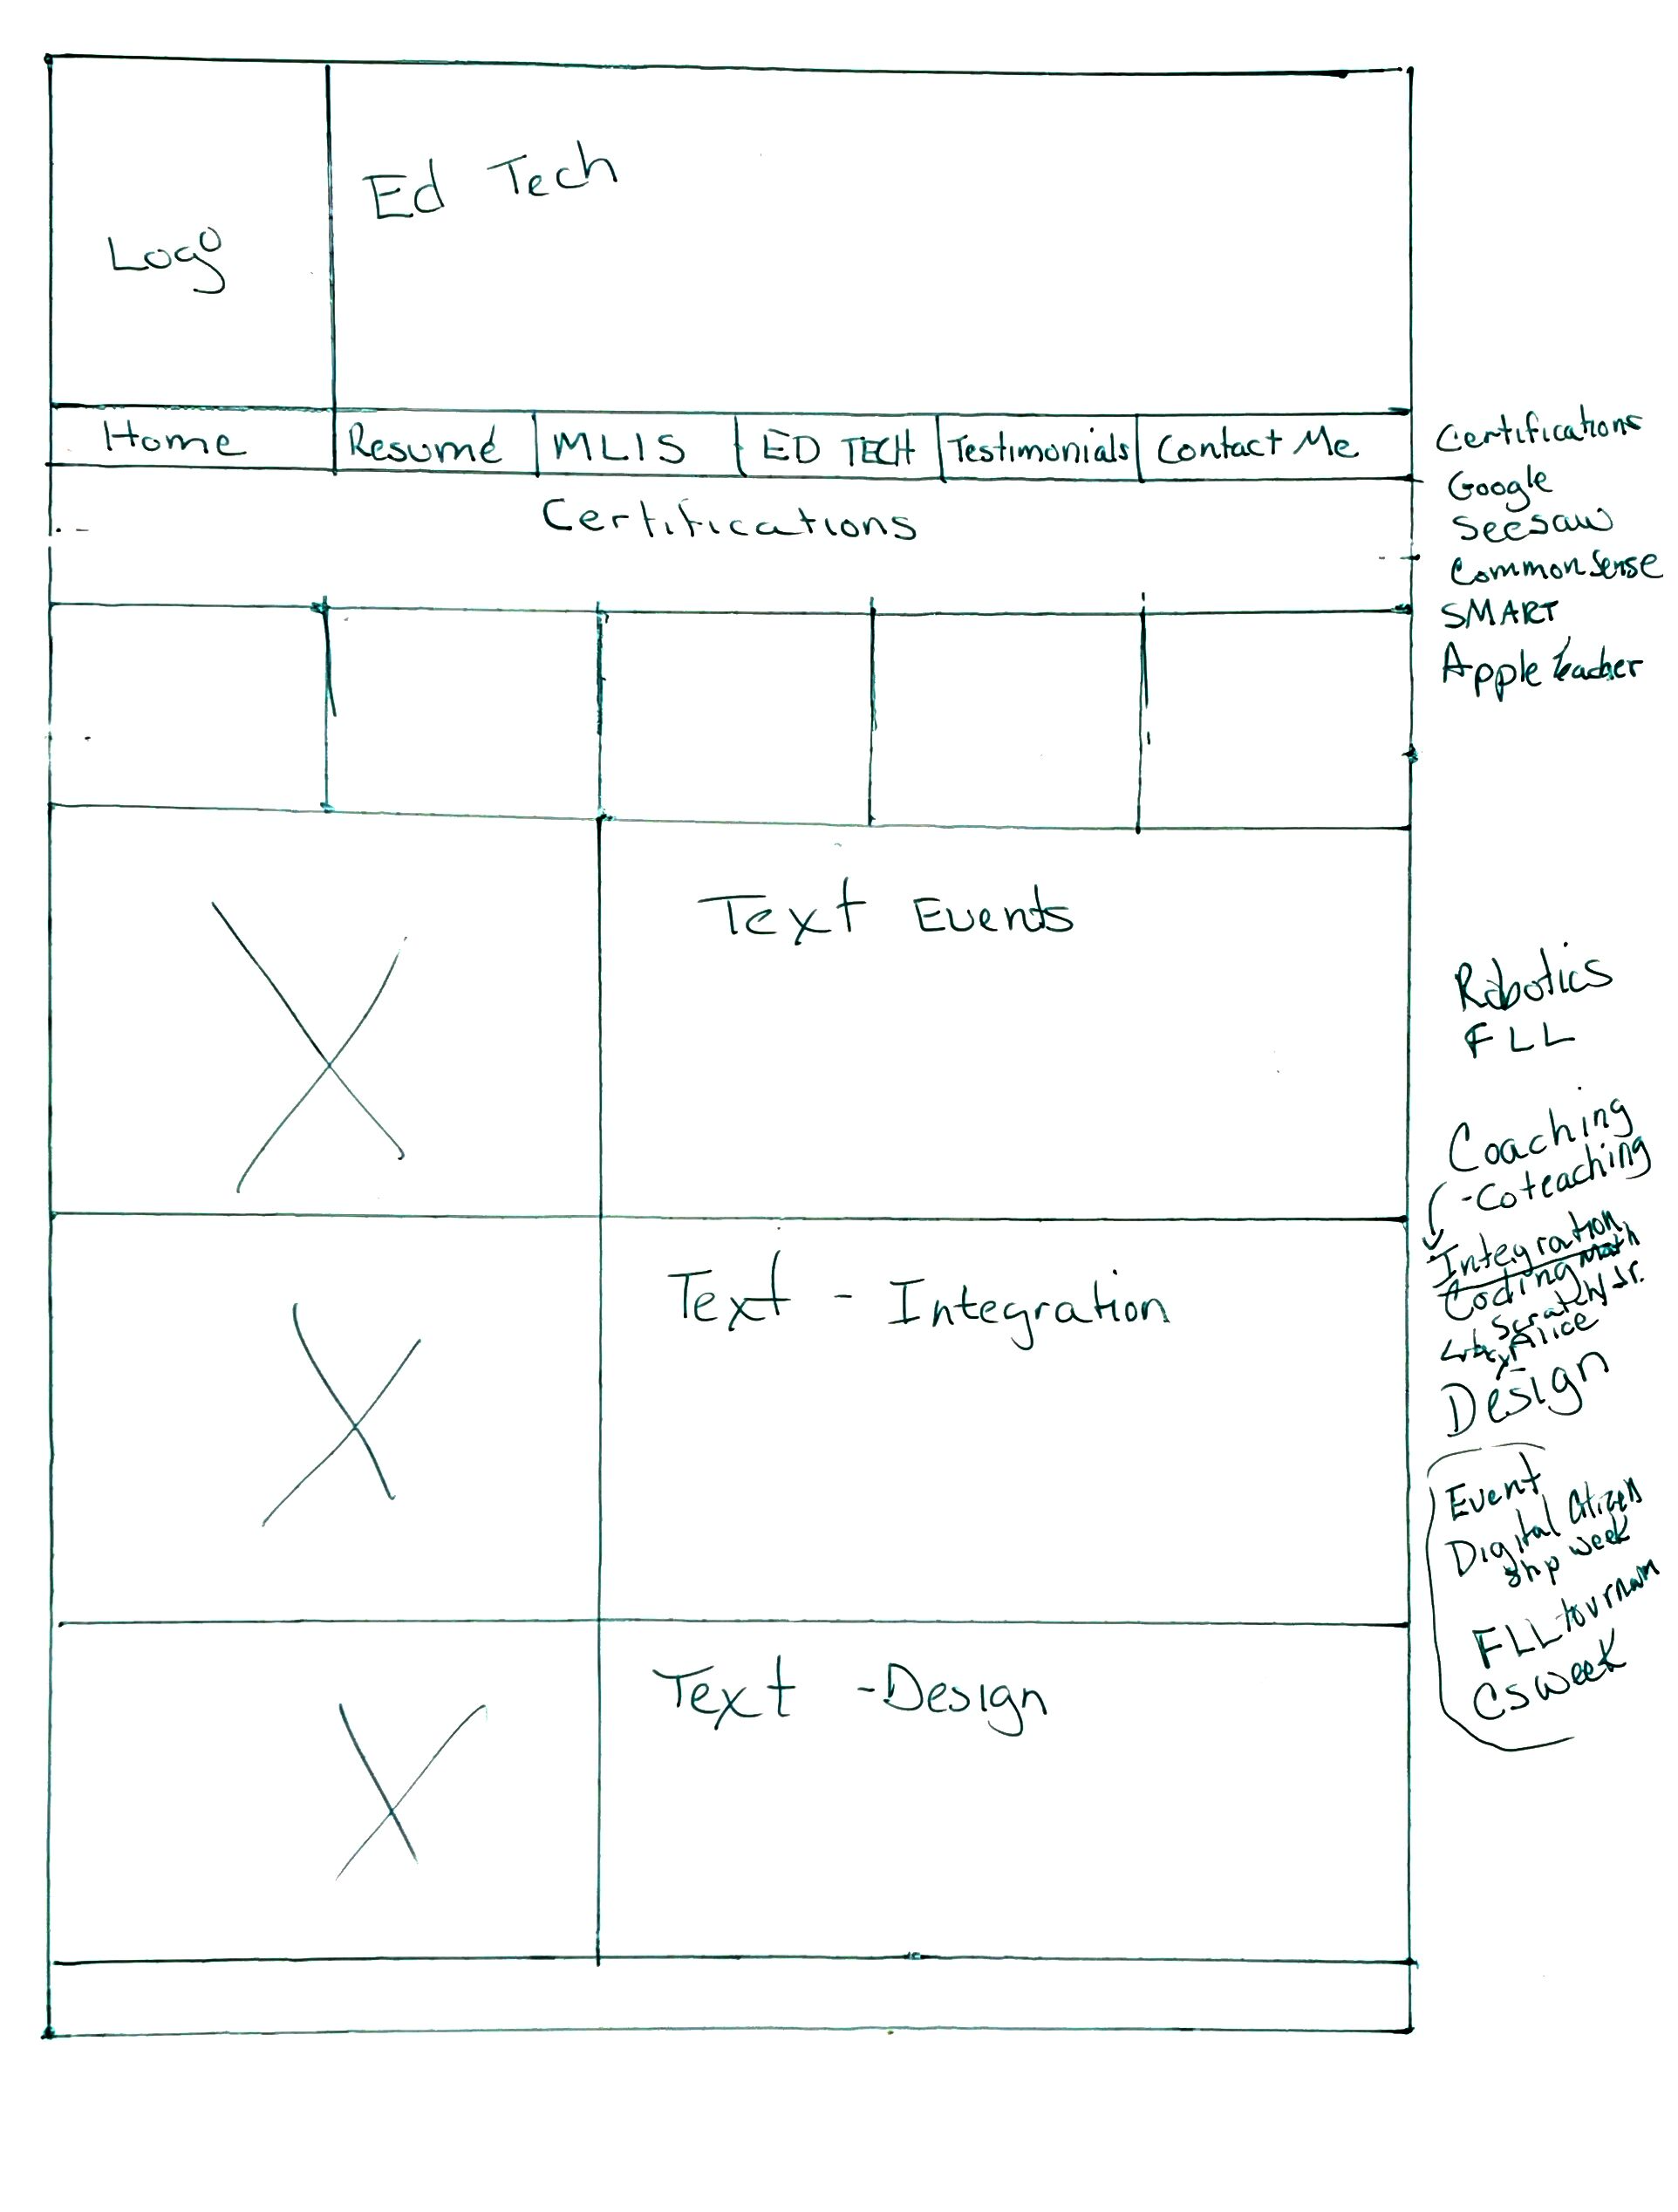 Ed Tech
Logo
Home Resumé MLIS ED TECH Testimonials Contact Me
Certifications
Text Events
Text - Integration
Text - Design
Certifications
Google
Seesaw
Common Sense
SMART
Apple Teacher
Robotics
FLL
Coaching
- Coteaching
Integration
Coding Math
Scratch/Jr.
Alice
Design
Event
Digital Citizen
Ship week
FLL tournam
CS Week